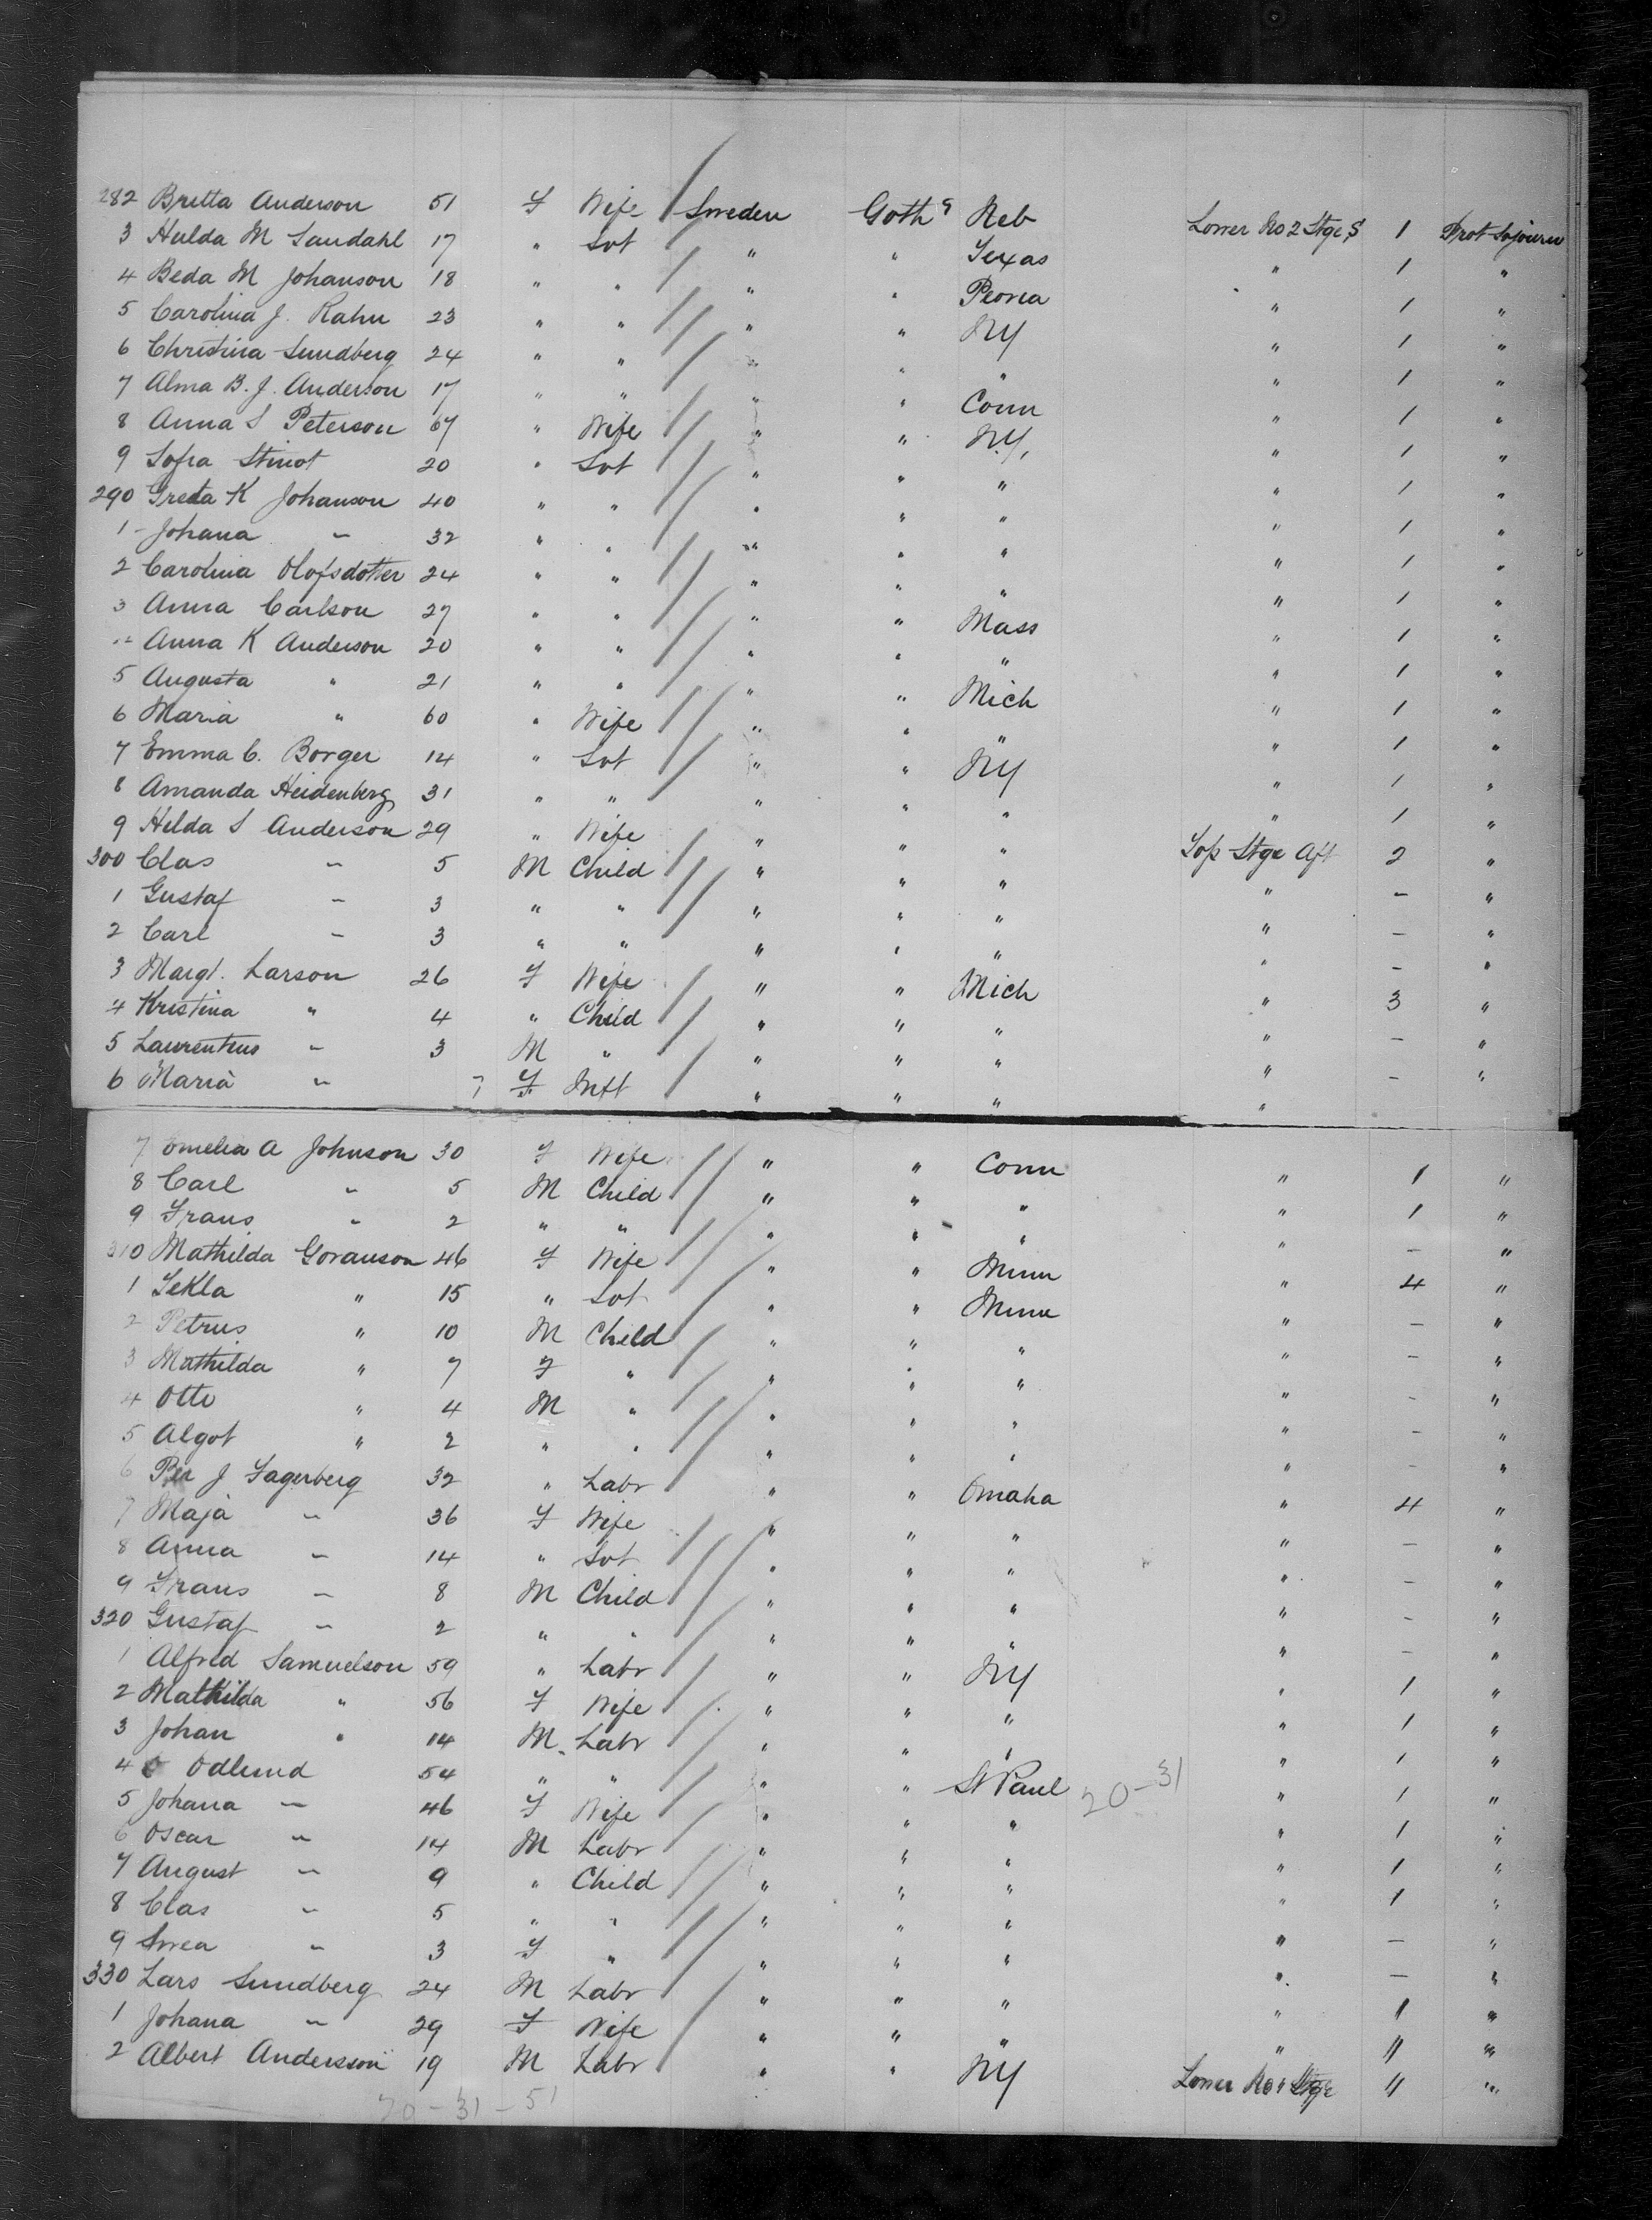 282 Britta Anderson 51 F Wife Sweden Gothg Neb Lower No 2 Stge S 1 Prot Sojourn
3 Hulda M Sandahl 17 " Svt " " Texas " 1 "
4 Beda M Johanson 18 " " " " Peoria " 1 "
5 Carolina J. Rahn 23 " " " " NY " 1 "
6 Christina Sundberg 24 " " " " " " 1 "
7 Alma B. J. Anderson 17 " " " " Conn " 1 "
8 Anna S Peterson 67 " Wife " " NY, " 1 "
9 Sofia 20 " Svt " " " " 1 "
290 Greta K Johanson 40 " " " " " " 1 "
1 Johana " 32 " " " " " " 1 "
2 Carolina Olofsdotter 24 " " " " " " 1 "
3 Anna Carlson 27 " " " " Mass " 1 "
Anna K Anderson 20 " " " " " " 1 "
5 Augusta " 21 " " " " Mich " 1 "
6 Maria " 60 " Wife " " " " 1 "
7 Emma C. Borger 14 " Svt " " NY " 1 "
8 Amanda Heidenberg 31 " " " " " " 1 "
9 Hilda S Anderson 29 " Wife " " " Top Stge Aft 2 "
300 Clas " 5 M Child " " " " - "
1 Gustaf " 3 " " " " " " - "
2 Carl " 3 " " " " " " - "
3 Margt. Larson 26 F Wife " " Mich " 3 "
4 Kristina " 4 " Child " " " " - "
5 Laurentius " 3 M " " " " " - "
6 Maria " F Inft " " " "
7 Emelia A Johnson 30 F Wife " " Conn " 1 "
8 Carl " 5 M Child " " " " 1 "
9 Frans " 2 " " " " " " - "
310 Mathilda Goranson 46 F Wife " " Minn " 4 "
1 Tekla " 15 " Svt " " Minn " - "
2 Petrus " 10 M Child " " " " - "
3 Mathilda " 7 F " " " " " - "
4 Otto " 4 M " " " " " - "
5 Algot " 2 " " " " " " - "
6 Per J Fagerberg 32 " Labr " " Omaha " 4 "
7 Maja " 36 F Wife " " " " - "
8 Anna " 14 " Svt " " " " - "
9 Frans " 8 M Child " " " " - "
320 Gustaf " 2 " " " " " " - "
1 Alfred Samuelson 59 " Labr " " NY " 1 "
2 Mathilda " 56 F Wife " " " " 1 "
3 Johan " 14 M Labr " " " " 1 "
4 O Odlund 54 " " " " St Paul 20-31 " 1 "
5 Johana " 46 F Wife " " " " 1 "
6 Oscar " 14 M Labr " " " " 1 "
7 August " 9 " Child " " " " 1 "
8 Clas " 5 " " " " " " - "
9 Swea " 3 F " " " " " - "
330 Lars Sundberg 24 M Labr " " " " 1 "
1 Johana " 29 F Wife " " " " 11 "
2 Albert Andersson 19 M Labr " " NY Lower No 1 Stge 11 "
20-31-51